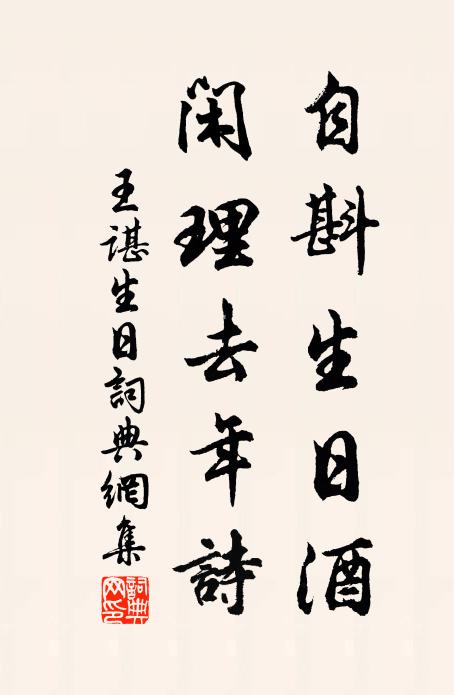 自斟生日酒
閑理去年詩
王諶生日詞典網集
詞典
网印